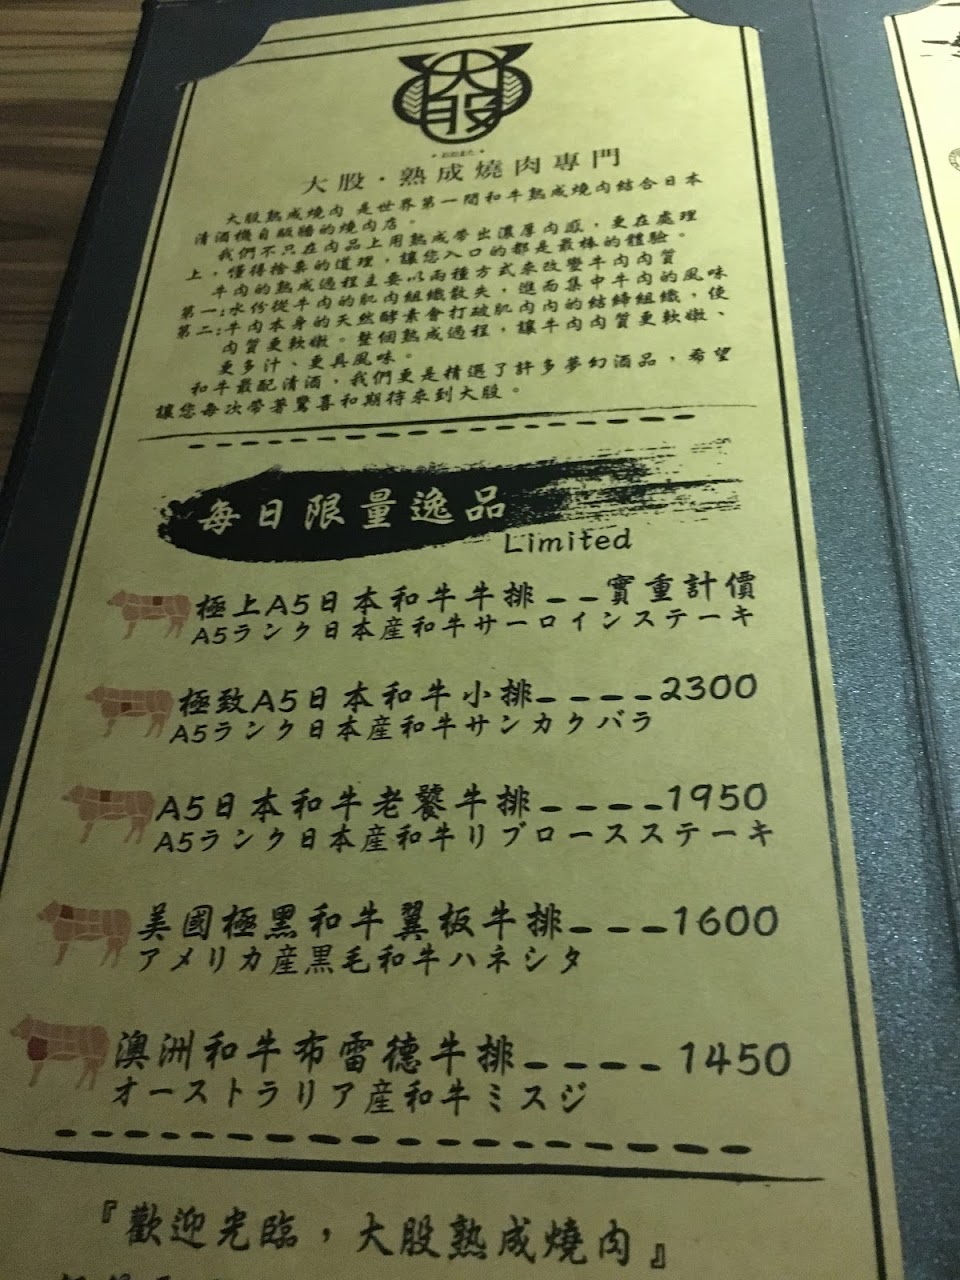 大股
大股・熟成燒肉專門
大股熟成燒肉 是世界第一間和牛熟成燒肉結合日本
清酒機自販牆的燒肉店。
我們不只在肉品上用熟成帶出濃厚肉感，更在處理
上，懂得捨棄的道理，讓您入口的都是最棒的體驗。
牛肉的熟成過程主要以兩種方式來改變牛肉肉質
第一:水份從牛肉的肌肉組織散失，進而集中牛肉的風味
第二:牛肉本身的天然酵素會打破肌肉內的結締組織，使
肉質更軟嫩。整個熟成過程，讓牛肉肉質更軟嫩、
更多汁、更具風味。
和牛最配清酒，我們更是精選了許多夢幻酒品，希望
讓您每次帶著驚喜和期待來到大股。
每日限量逸品
Limited
極上A5日本和牛牛排---實重計價
A5ランク日本産和牛サーロインステーキ
極致A5日本和牛小排----2300
A5ランク日本産和牛サンカクバラ
A5日本和牛老饕牛排----1950
A5ランク日本産和牛リブロースステーキ
美國極黑和牛翼板牛排---1600
アメリカ産黒毛和牛ハネシタ
澳洲和牛布雷德牛排----1450
オーストラリア産和牛ミスジ
『歡迎光臨，大股熟成燒肉』